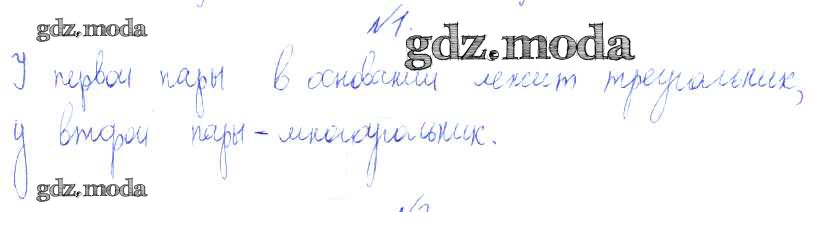 №1.
gdz.moda
gdz.moda
У первой пары в основании лежит треугольник,
у второй пары - многоугольник.
gdz.moda
№2